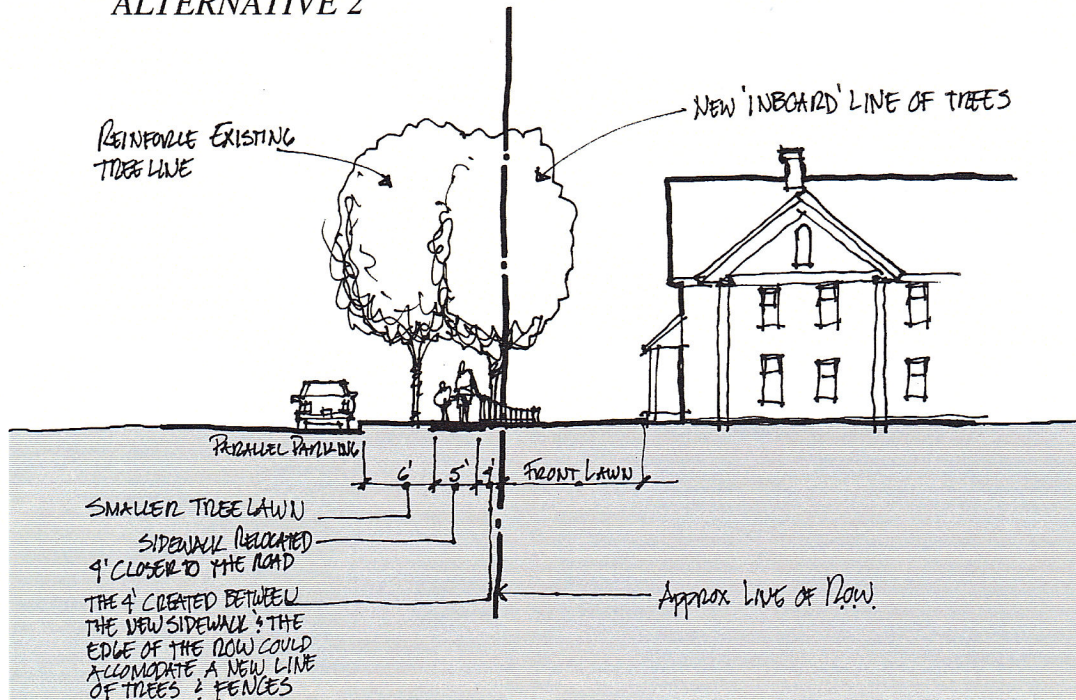 ALTERNATIVE 2
NEW 'INBOARD' LINE OF TREES
REINFORCE EXISTING
TREE LINE
PARALLEL PARKING
6' 5' 4' FRONT LAWN
SMALLER TREE LAWN
SIDEWALK RELOCATED
4' CLOSER TO THE ROAD
THE 4' CREATED BETWEEN
THE NEW SIDEWALK & THE
EDGE OF THE ROW COULD
ACCOMODATE A NEW LINE
OF TREES & FENCES
APPROX LINE OF R.O.W.